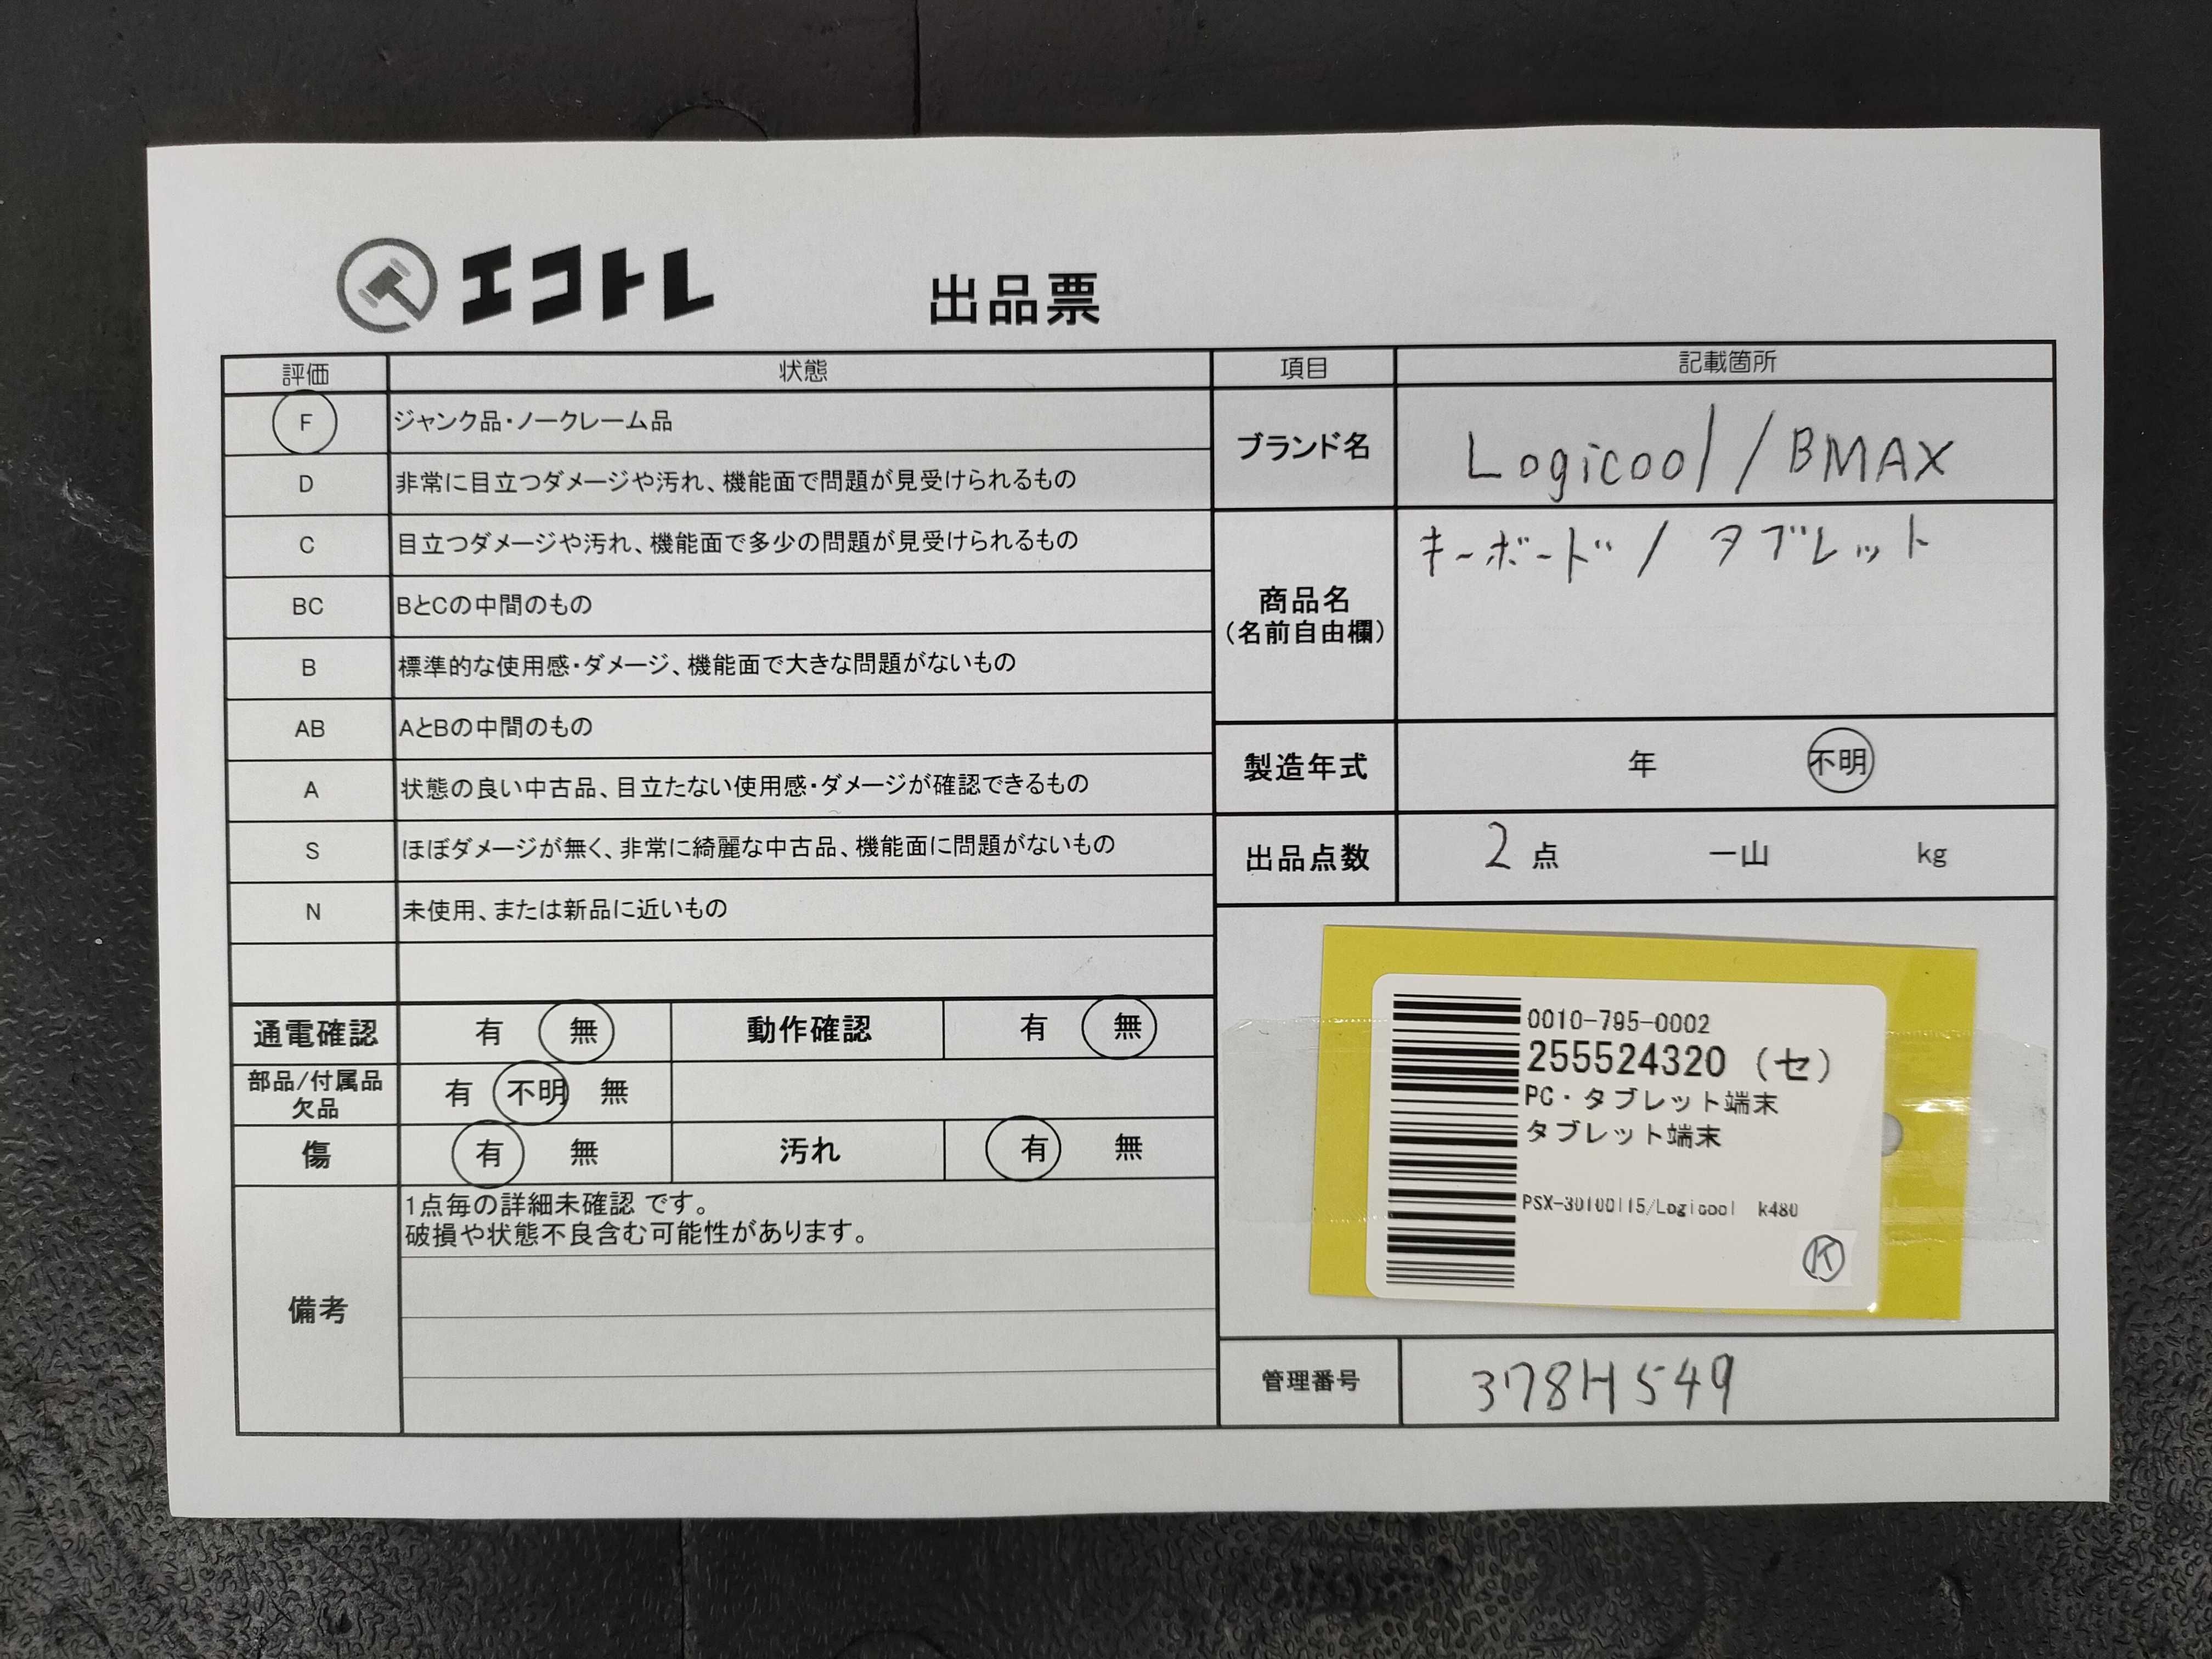 エコトレ 出品票
評価 状態
F ジャンク品・ノークレーム品
D 非常に目立つダメージや汚れ、機能面で問題が見受けられるもの
C 目立つダメージや汚れ、機能面で多少の問題が見受けられるもの
BC BとCの中間のもの
B 標準的な使用感・ダメージ、機能面で大きな問題がないもの
AB AとBの中間のもの
A 状態の良い中古品、目立たない使用感・ダメージが確認できるもの
S ほぼダメージが無く、非常に綺麗な中古品、機能面に問題がないもの
N 未使用、または新品に近いもの
通電確認 有 無 動作確認 有 無
部品/付属品
欠品 有 不明 無
傷 有 無 汚れ 有 無
備考
1点毎の詳細未確認 です。
破損や状態不良含む可能性があります。
項目 記載箇所
ブランド名 Logicool/BMAX
商品名
(名前自由欄)
キーボード/タブレット
製造年式 年 不明
出品点数 2 点 一山 kg
0010-795-0002
255524320 (セ)
PC・タブレット端末
タブレット端末
PSX-30100115/Logicool k480
K
管理番号 378H549